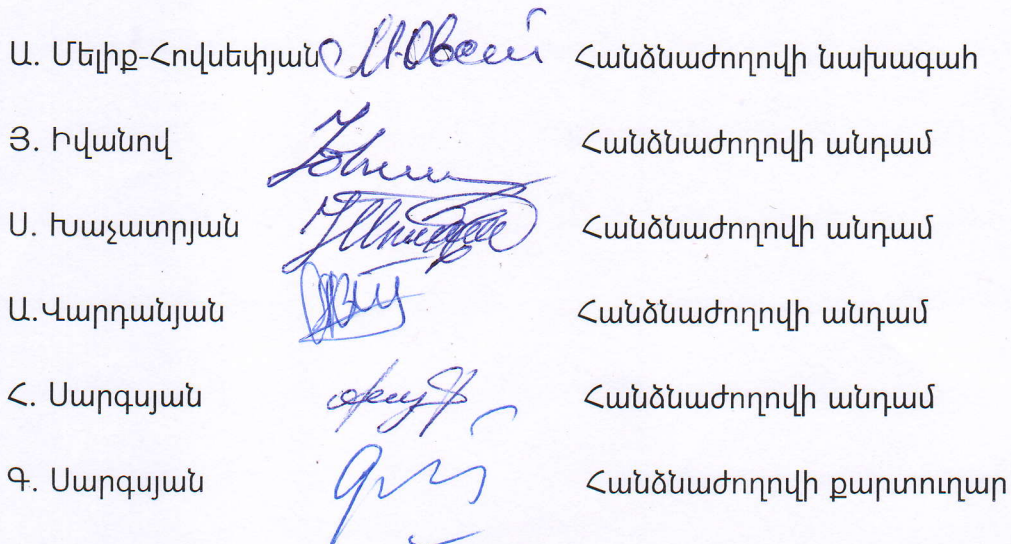 Ա. Մելիք-Հովսեփյան Հանձնաժողովի նախագահ
Յ. Իվանով Հանձնաժողովի անդամ
Ս. Խաչատրյան Հանձնաժողովի անդամ
Ա.Վարդանյան Հանձնաժողովի անդամ
Հ. Սարգսյան Հանձնաժողովի անդամ
Գ. Սարգսյան Հանձնաժողովի քարտուղար